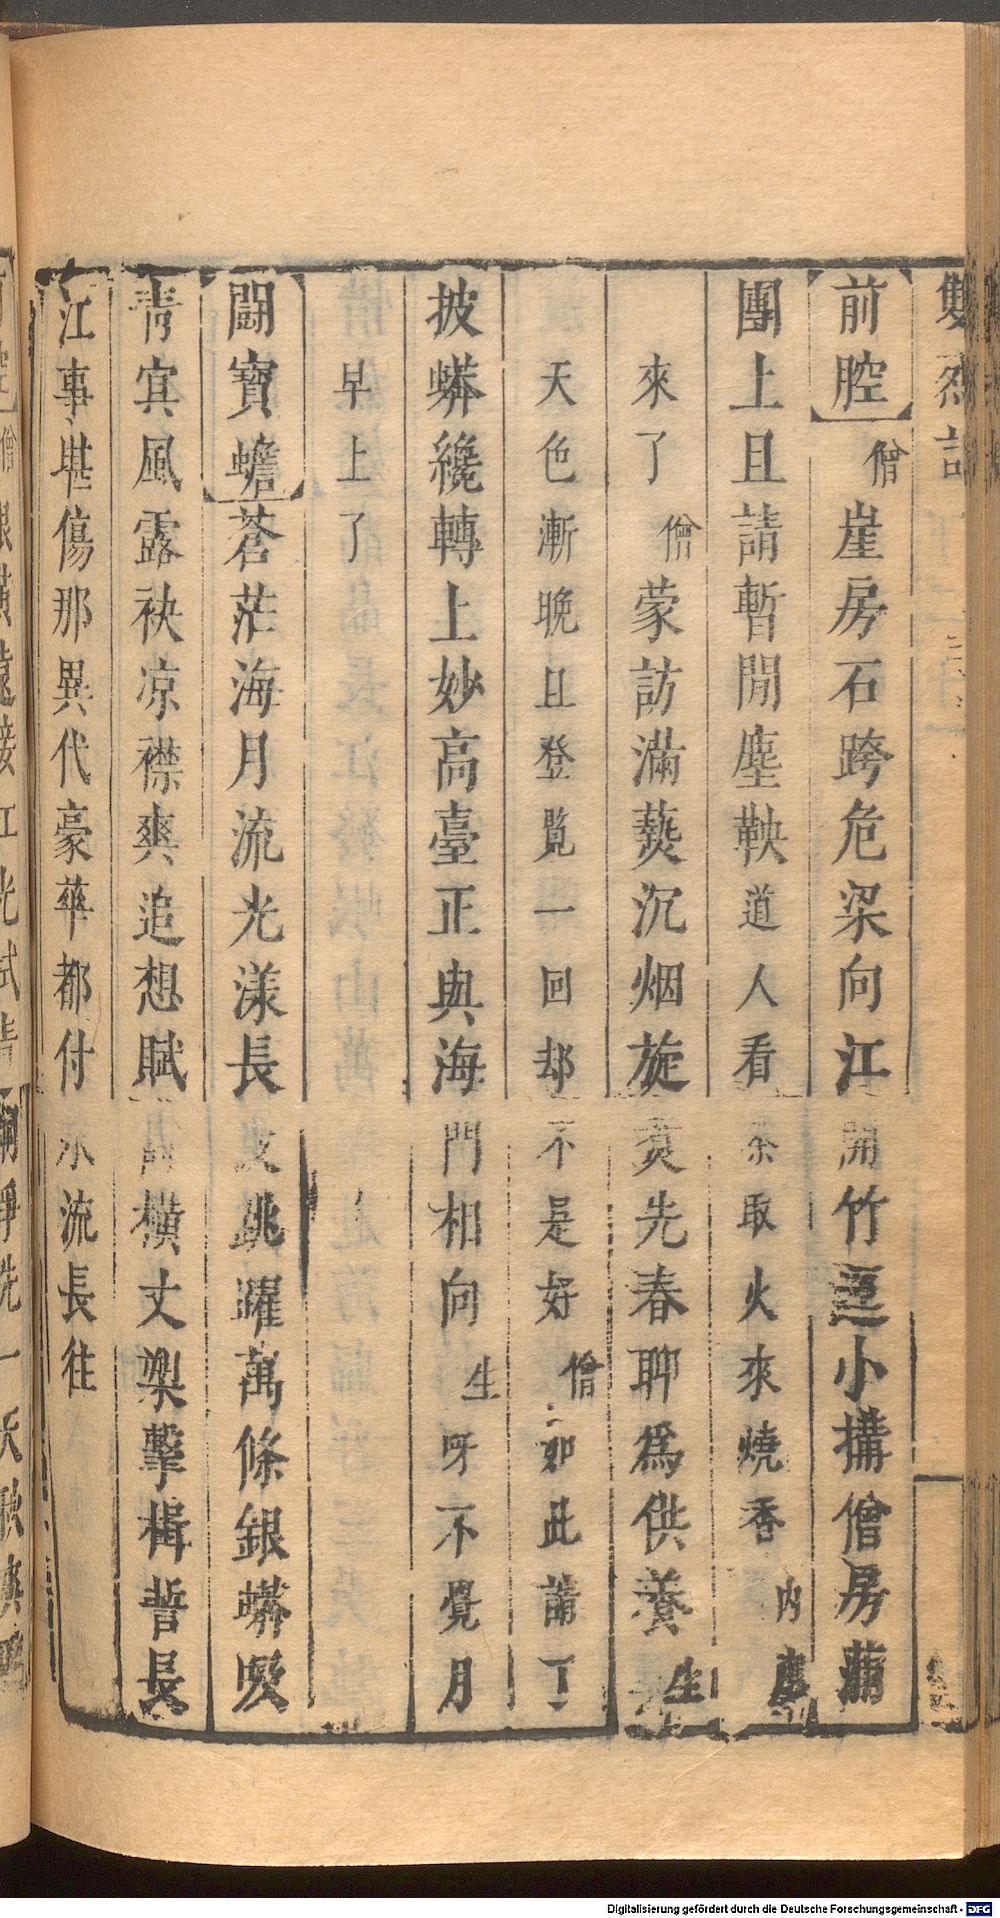 雙烈記
前腔 僧 崖房石跨危梁向江開竹逕小搆僧房蒲
團上且請暫閒塵鞅道人看茶取火來燒香內應
來了僧蒙訪滿爇沉烟旋煑先春聊爲供養生
天色漸晚且登覽一回却不是好僧如此請了
披蟒纔轉上妙高臺正與海門相向生呀不覺月
早上了
鬬寶蟾 蒼茫海月流光漾長波跳躍萬條銀蟒吸
靑冥風露袂凉襟爽追想賦詩橫丈槊擊楫誓長
江事堪傷那異代豪華都付水流長往
Digitalisierung gefördert durch die Deutsche Forschungsgemeinschaft - DFG